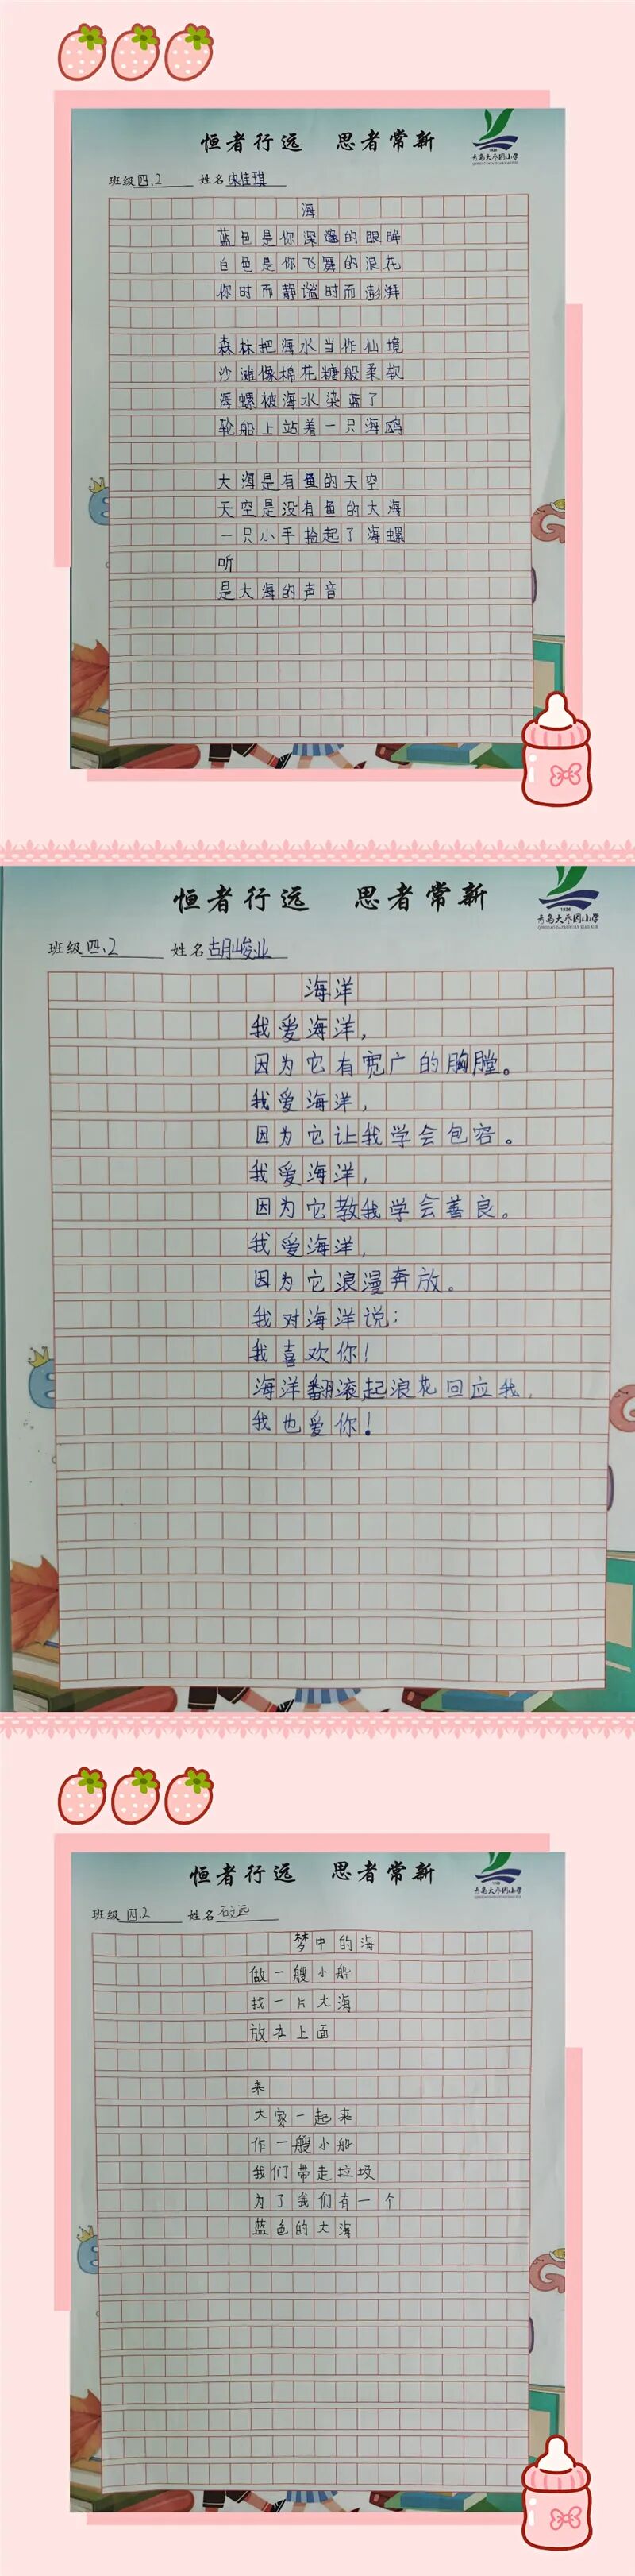 恒者行远 思者常新
1906
青岛大枣园小学
班级 四.2 姓名 宋佳琪
海
蓝色是你深邃的眼眸
白色是你飞舞的浪花
你时而静谧时而澎湃
森林把海水当作仙境
沙滩像棉花糖般柔软
海螺被海水染蓝了
轮船上站着一只海鸥
大海是有鱼的天空
天空是没有鱼的大海
一只小手捡起了海螺
听
是大海的声音
恒者行远 思者常新
1906
青岛大枣园小学
班级 四.2 姓名 胡峻业
海洋
我爱海洋，
因为它有宽广的胸膛。
我爱海洋，
因为它让我学会包容。
我爱海洋，
因为它教我学会善良。
我爱海洋，
因为它浪漫奔放。
我对海洋说：
我喜欢你！
海洋翻滚起浪花回应我，
我也爱你！
恒者行远 思者常新
1906
青岛大枣园小学
班级 四.2 姓名
梦中的海
做一艘小船
找一片大海
放在上面
来
大家一起来
作一艘小船
我们带走垃圾
为了我们有一个
蓝色的大海